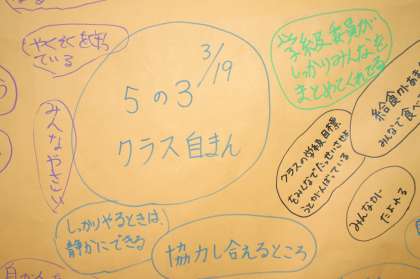 やくそくを守っ
ている
3/19
5の3
クラス自まん
学級委員が
しっかりみんなを
まとめてくれてる
みんなやさしい
クラスの学級目標
をみんなでたっせいさせよ
うとがんばっている
給食が
みんなで食
みんなが
たよれる
しっかりやるときは、
静かにできる
協力し合えるところ